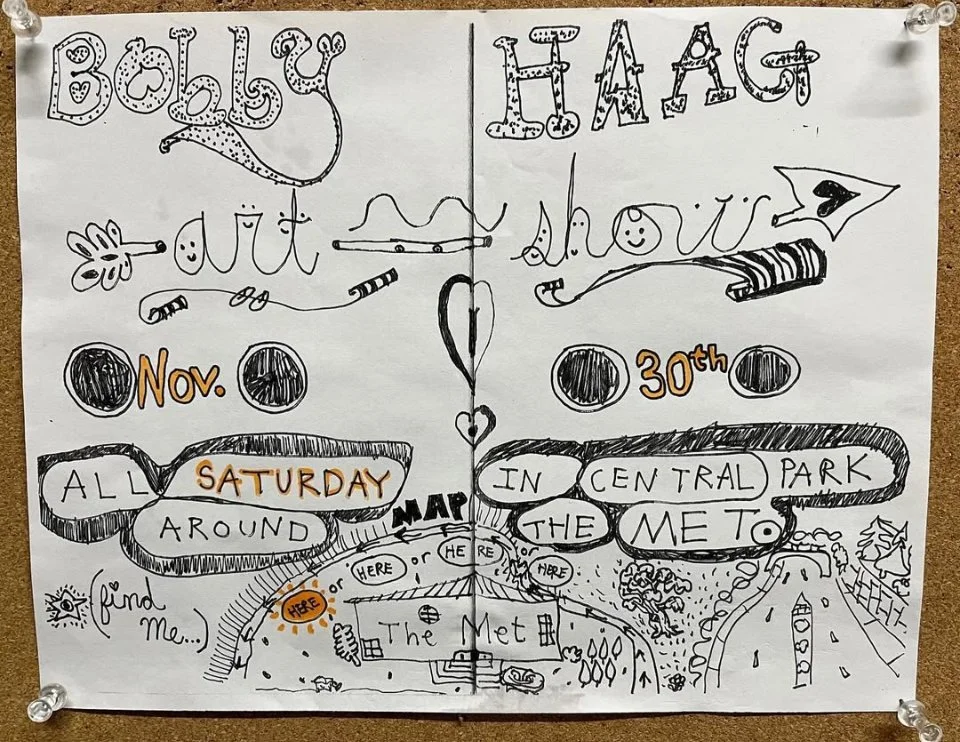 BOBBY HAAG
art show
Nov. 30th
ALL SATURDAY IN CENTRAL PARK
AROUND THE MET.
MAP
HERE or HERE or HERE or HERE
(find me...)
The Met